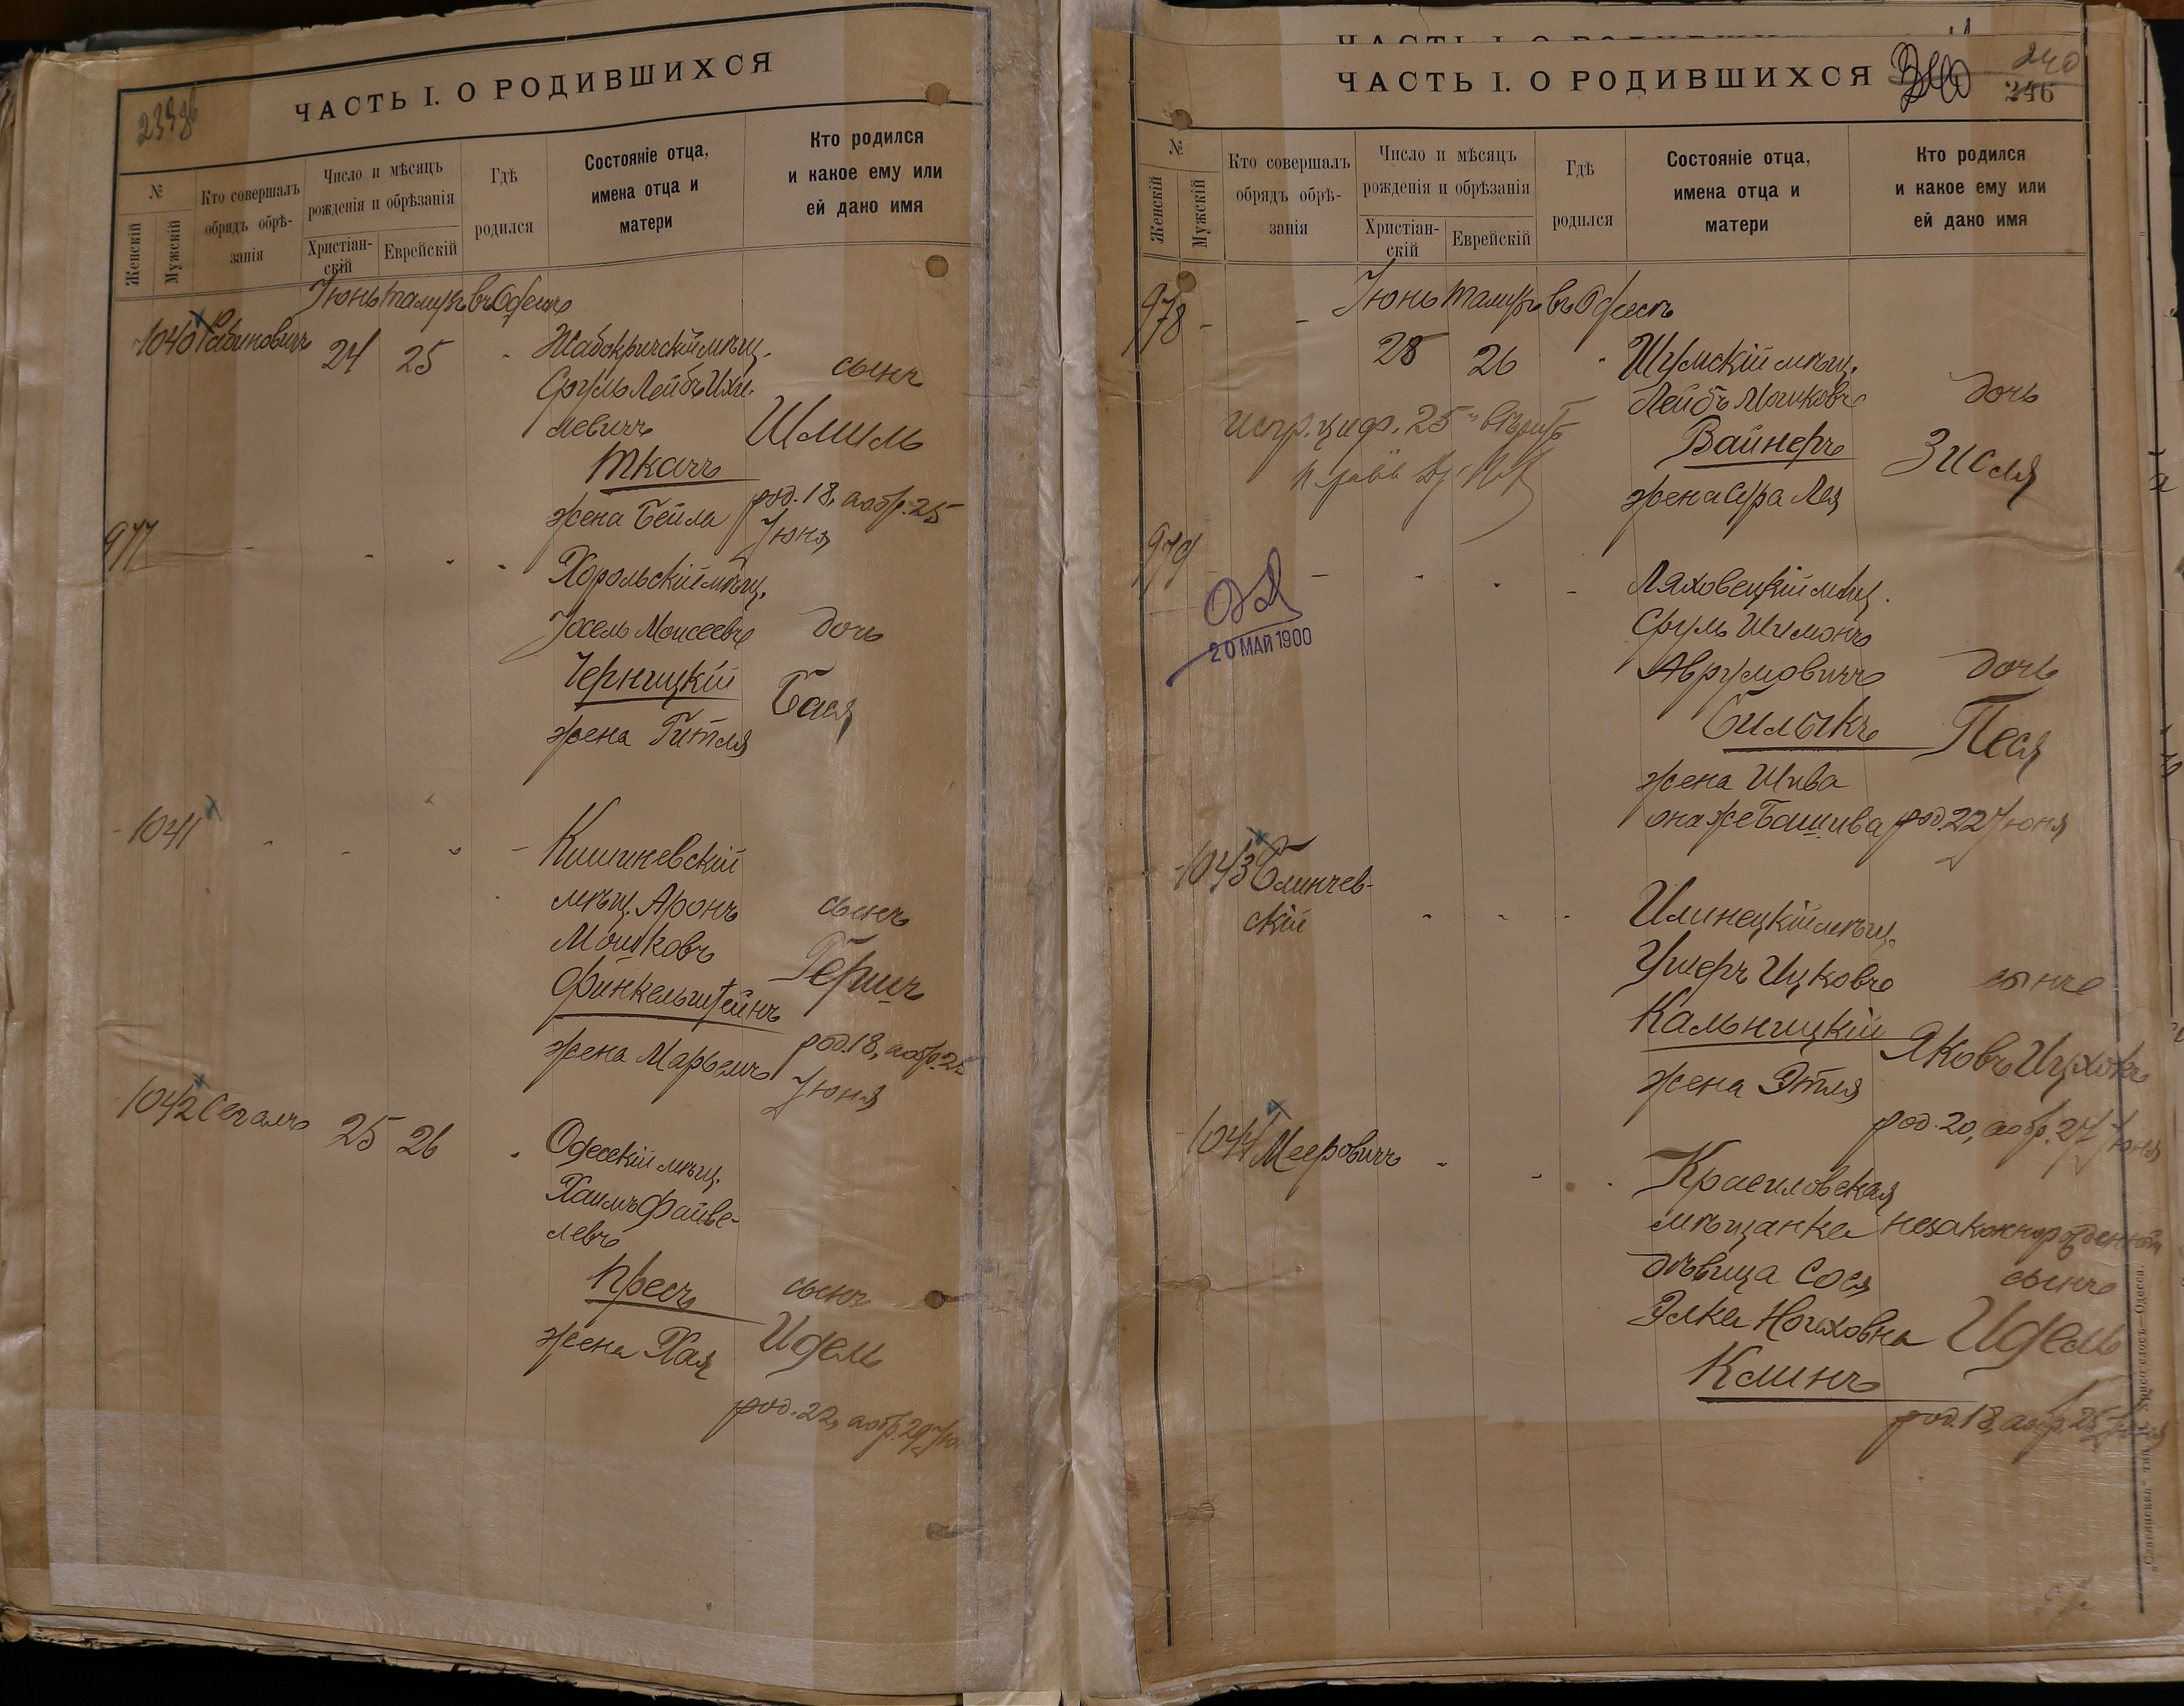 239об
ЧАСТЬ I. О РОДИВШИХСЯ
№
Женскій
Мужскій
Кто совершалъ
обрядъ обрѣ-
занія
Число и мѣсяцъ
рожденія и обрѣзанія
Христіан-
скій
Еврейскій
Гдѣ
родился
Состояніе отца,
имена отца и
матери
Кто родился
и какое ему или
ей дано имя
Іюнь тамузъ въ Одессѣ
1040 Рабиновичъ 24 25 Жабокричскій мѣщ.
Сруль Лейбъ Ихи-
левичъ сынъ
Ткачъ Шмиль
жена Бейла род. 18, а обр. 25
Іюня
977 Хорольскій мѣщ.
Іосель Моисеевъ дочь
Черницкій
жена Гитля Бася
1041 Кишиневскій
мѣщ. Аронъ сынъ
Мошковъ
Финкельштейнъ Гершъ
жена Марьемъ род. 18, а обр. 25
Іюня
1042 Сегалъ 25 26 Одесскій мѣщ.
Хаимъ Файве-
левъ
Пресъ сынъ
жена Хая Идель
род. 22, а обр. 29
ЧАСТЬ I. О РОДИВШИХСЯ
240
246
№
Женскій
Мужскій
Кто совершалъ
обрядъ обрѣ-
занія
Число и мѣсяцъ
рожденія и обрѣзанія
Христіан-
скій
Еврейскій
Гдѣ
родился
Состояніе отца,
имена отца и
матери
Кто родился
и какое ему или
ей дано имя
Іюнь тамузъ въ Одессѣ
978 25 26 Шумскій мѣщ.
Лейбъ Мошковъ дочь
Вайнеръ Зисля
жена Сура Лея
испр. циф. 25
979 Ляховецкій мѣщ.
Сруль Шимонъ
Аврумовичъ дочь
Билыкъ Песя
жена Шива
она же Башива род. 22 Іюня
20 МАЙ 1900
1043 Блинчев-
скій
Илинецкій мѣщ.
Ушеръ Ицковъ сынъ
Кальницкій Яковъ Ицхокъ
жена Этля
род. 20, а обр. 27 Іюня
1044 Мееровичъ Красиловская
мѣщанка незаконнорожденный
дѣвица Сося сынъ
Элка Ноиховна Идель
Клинъ
род. 18, а обр. 25 Іюня